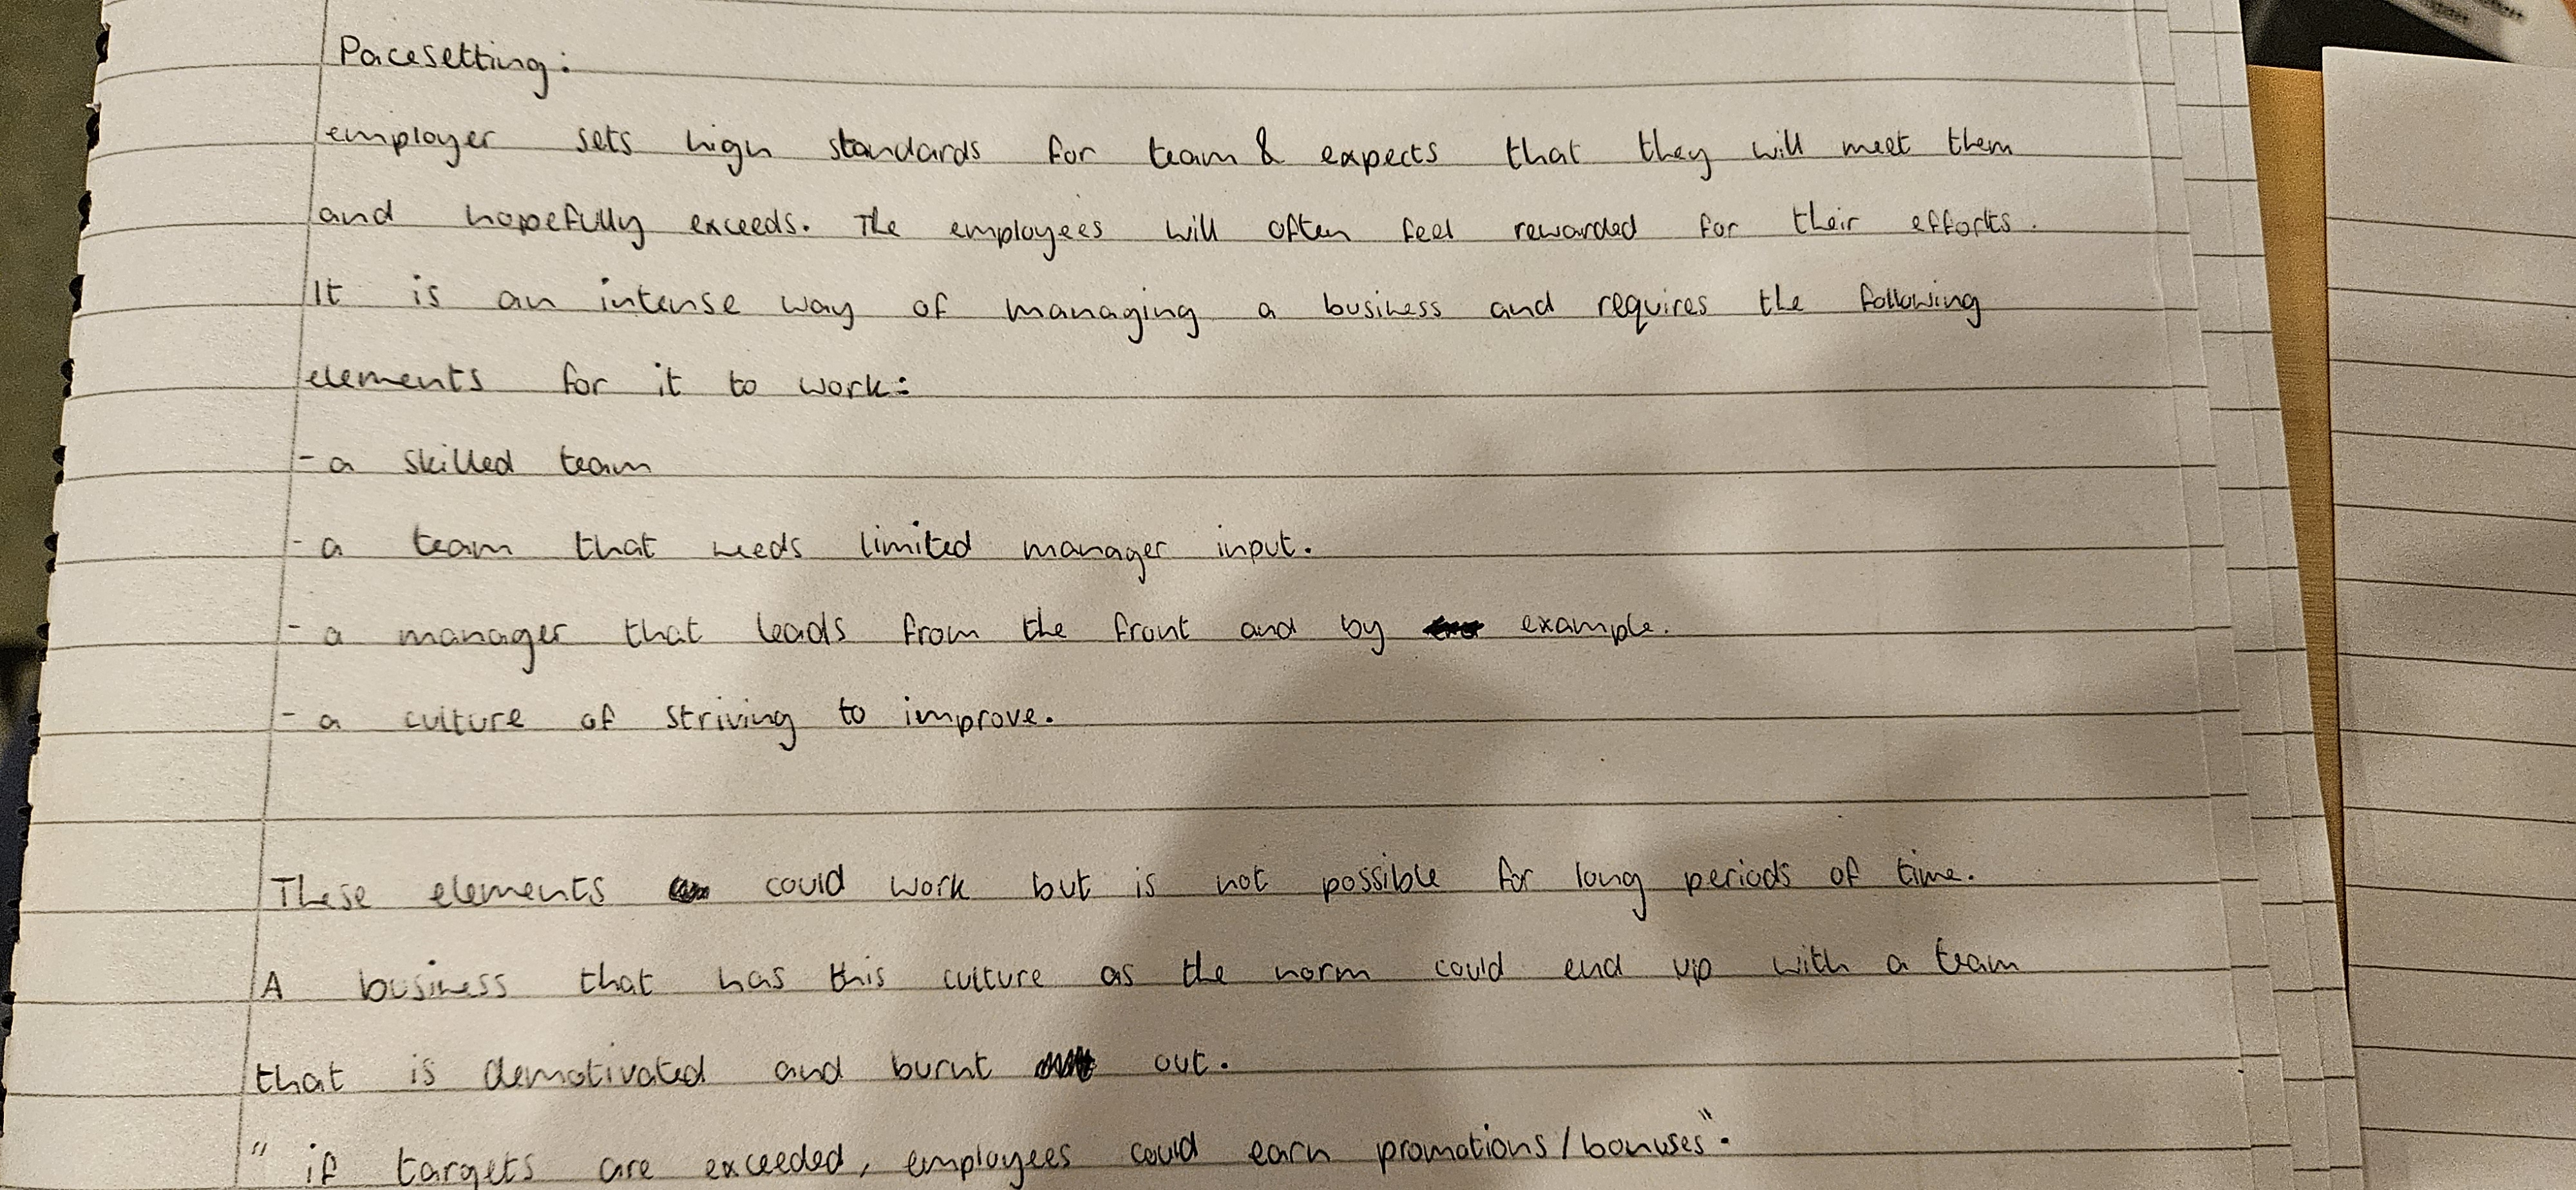 Pacesetting:
employer sets high standards for team & expects that they will meet them
and hopefully exceeds. The employees will often feel rewarded for their efforts.
It is an intense way of managing a business and requires the following
elements for it to work:
- a skilled team
- a team that needs limited manager input.
- a manager that leads from the front and by example.
- a culture of striving to improve.
These elements could work but is not possible for long periods of time.
A business that has this culture as the norm could end up with a team
that is demotivated and burnt out.
" if targets are exceeded, employees could earn promotions/bonuses."